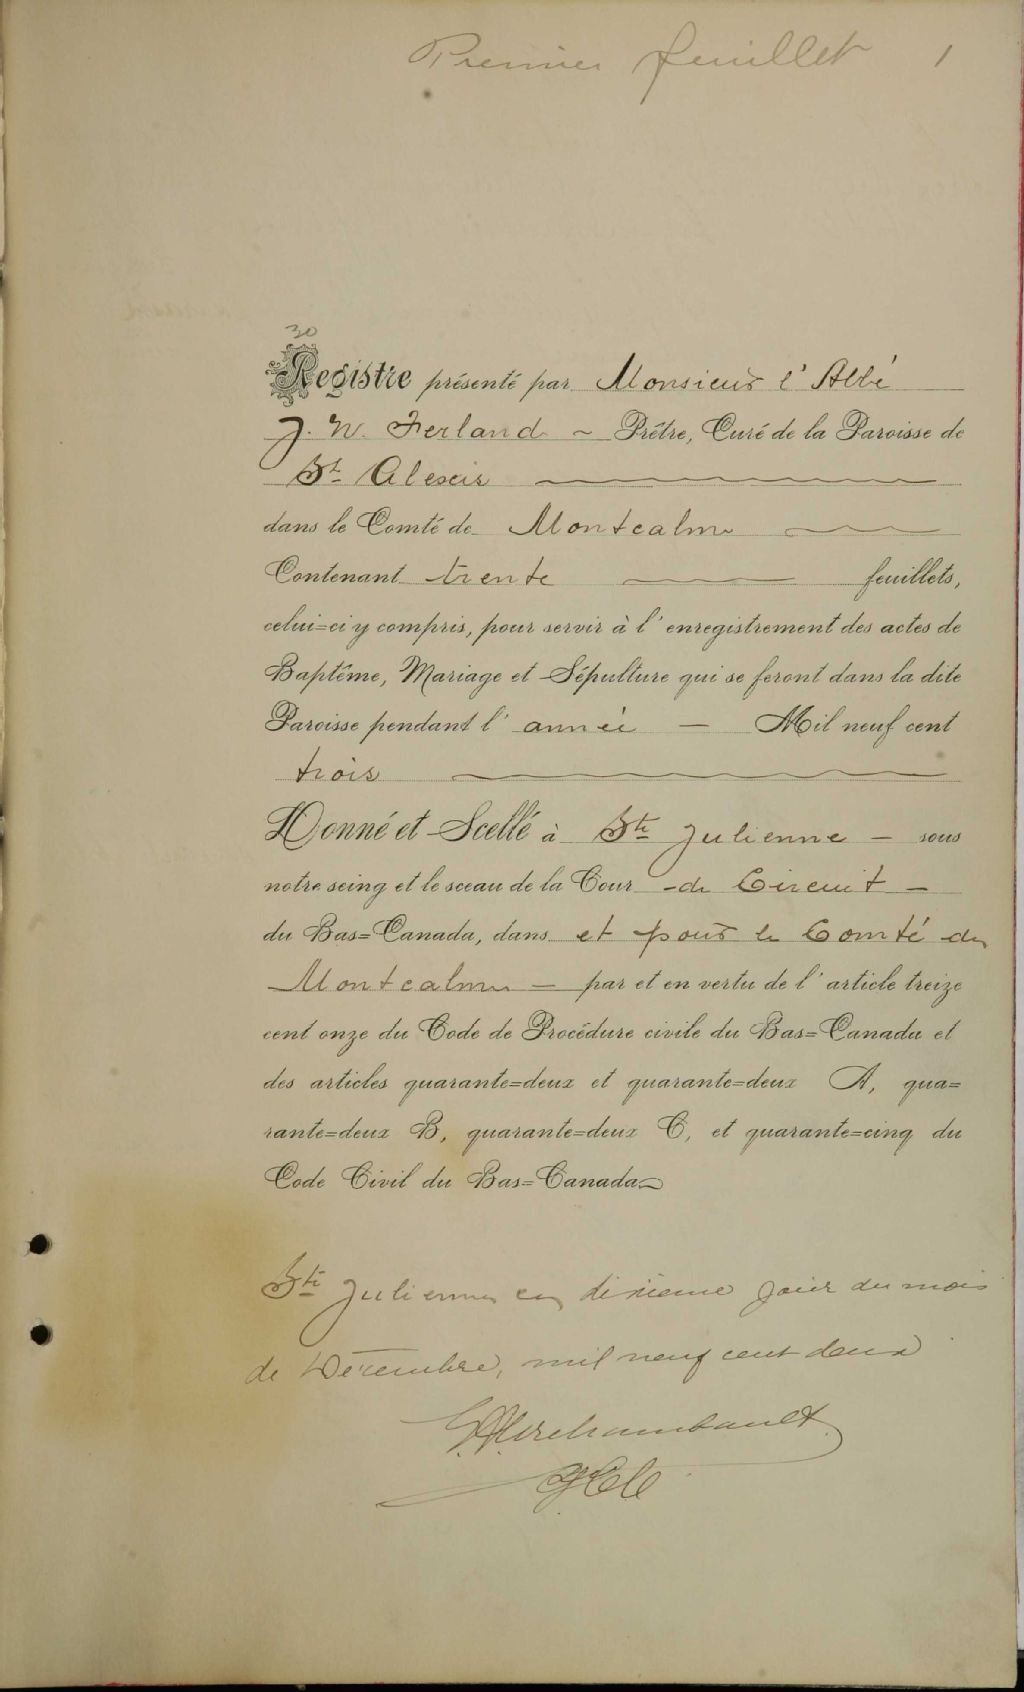 Premier feuillet 1
30
Registre présenté par Monsieur l'Abbé
J. N. Ferland ~ Prêtre, Curé de la Paroisse de
St Alexis
dans le Comté de Montcalm
Contenant trente feuillets,
celui=ci y compris, pour servir à l'enregistrement des actes de
Baptême, Mariage et Sépulture qui se feront dans la dite
Paroisse pendant l'année — Mil neuf cent
trois
Donné et Scellé à Ste Julienne — sous
notre seing et le sceau de la Cour - de Circuit -
du Bas=Canada, dans et pour le Comté de
Montcalm — par et en vertu de l'article treize
cent onze du Code de Procédure civile du Bas=Canada et
des articles quarante=deux et quarante=deux A, qua=
rante=deux B, quarante=deux C, et quarante=cinq du
Code Civil du Bas=Canada
Ste Julienne ce dixième jour du mois
de Décembre, mil neuf cent deux
Archambault